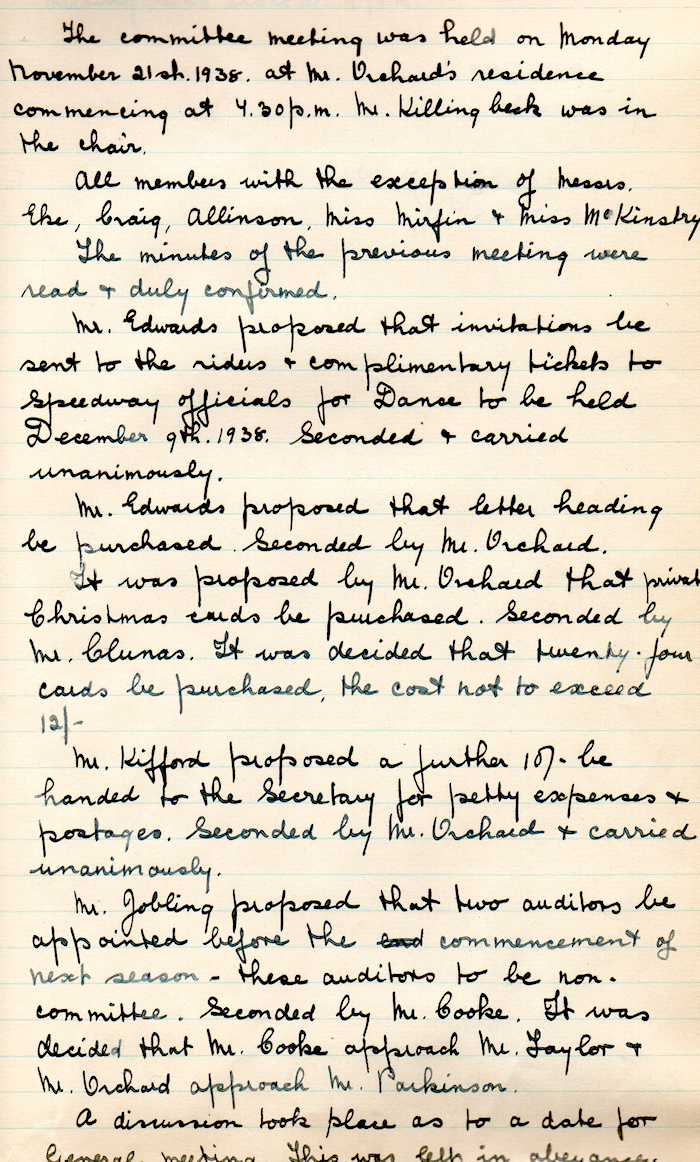 The committee meeting was held on Monday
November 21st. 1938. at Mr. Orchard's residence
commencing at 7.30p.m. Mr. Killingbeck was in
the chair.
All members with the exception of Messrs.
Eke, Craig, Allinson, Miss Mirfin & Miss McKinstry
The minutes of the previous meeting were
read & duly confirmed.
Mr. Edwards proposed that invitations be
sent to the riders & complimentary tickets to
Speedway officials for Dance to be held
December 9th. 1938. Seconded & carried
unanimously.
Mr. Edwards proposed that letter heading
be purchased. Seconded by Mr. Orchard.
It was proposed by Mr. Orchard that privat
Christmas cards be purchased. Seconded by
Mr. Clunas. It was decided that twenty-four
cards be purchased, the cost not to exceed
12/-
Mr. Kifford proposed a further 10/- be
handed to the Secretary for petty expenses &
postages. Seconded by Mr. Orchard & carried
unanimously.
Mr. Jobling proposed that two auditors be
appointed before the end commencement of
next season - these auditors to be non-
committee. Seconded by Mr. Cooke. It was
decided that Mr. Cooke approach Mr. Taylor &
Mr. Orchard approach Mr. Parkinson.
A discussion took place as to a date for
General meeting. This was left in abeyance.